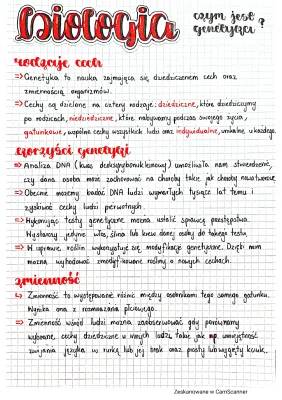 biologia
czym jest
genetyka ?
rodzaje cech
⇒ Genetyka to nauka zajmująca się dziedziczeniem cech oraz
zmiennością organizmów.
⇒ Cechy są dzielone na cztery rodzaje: dziedziczne, które dziedziczymy
po rodzicach, niedziedziczne, które nabywamy podczas swojego życia,
gatunkowe, wspólne cechy wszystkich ludzi oraz indywidualne, unikalne u każdego.
korzyści genetyki
⇒ Analiza DNA (kwas deoksyrybonukleinowy) umożliwiła nam stwierdzenie,
czy dana osoba może zachorować na choroby takie jak choroby nowotworowe
⇒ Obecnie możemy badać DNA ludzi wymarłych tysiące lat temu i
zyskiwać cechy ludzi pierwotnych.
⇒ Wykonując testy genetyczne można ustalić sprawcę przestępstwa.
Wystarczy jedynie włos, ślina lub krew danej osoby do takiego testu.
⇒ W uprawie roślin wykorzystuje się modyfikacje genetyczne. Dzięki nim
można wyhodować zmodyfikowane rośliny o nowych cechach.
zmienność
↳ Zmienność to występowanie różnic między osobnikami tego samego gatunku.
Wynika ona z rozmnażania płciowego.
⇒ Zmienność wśród ludzi można zaobserwować gdy porównamy
wybrane, cechy dziedziczne u innych ludzi, takie jak np. umiejętność
zwijania języka w rurkę lub jej brak oraz prosty lub wygięty kciuk.
Zeskanowane w CamScanner